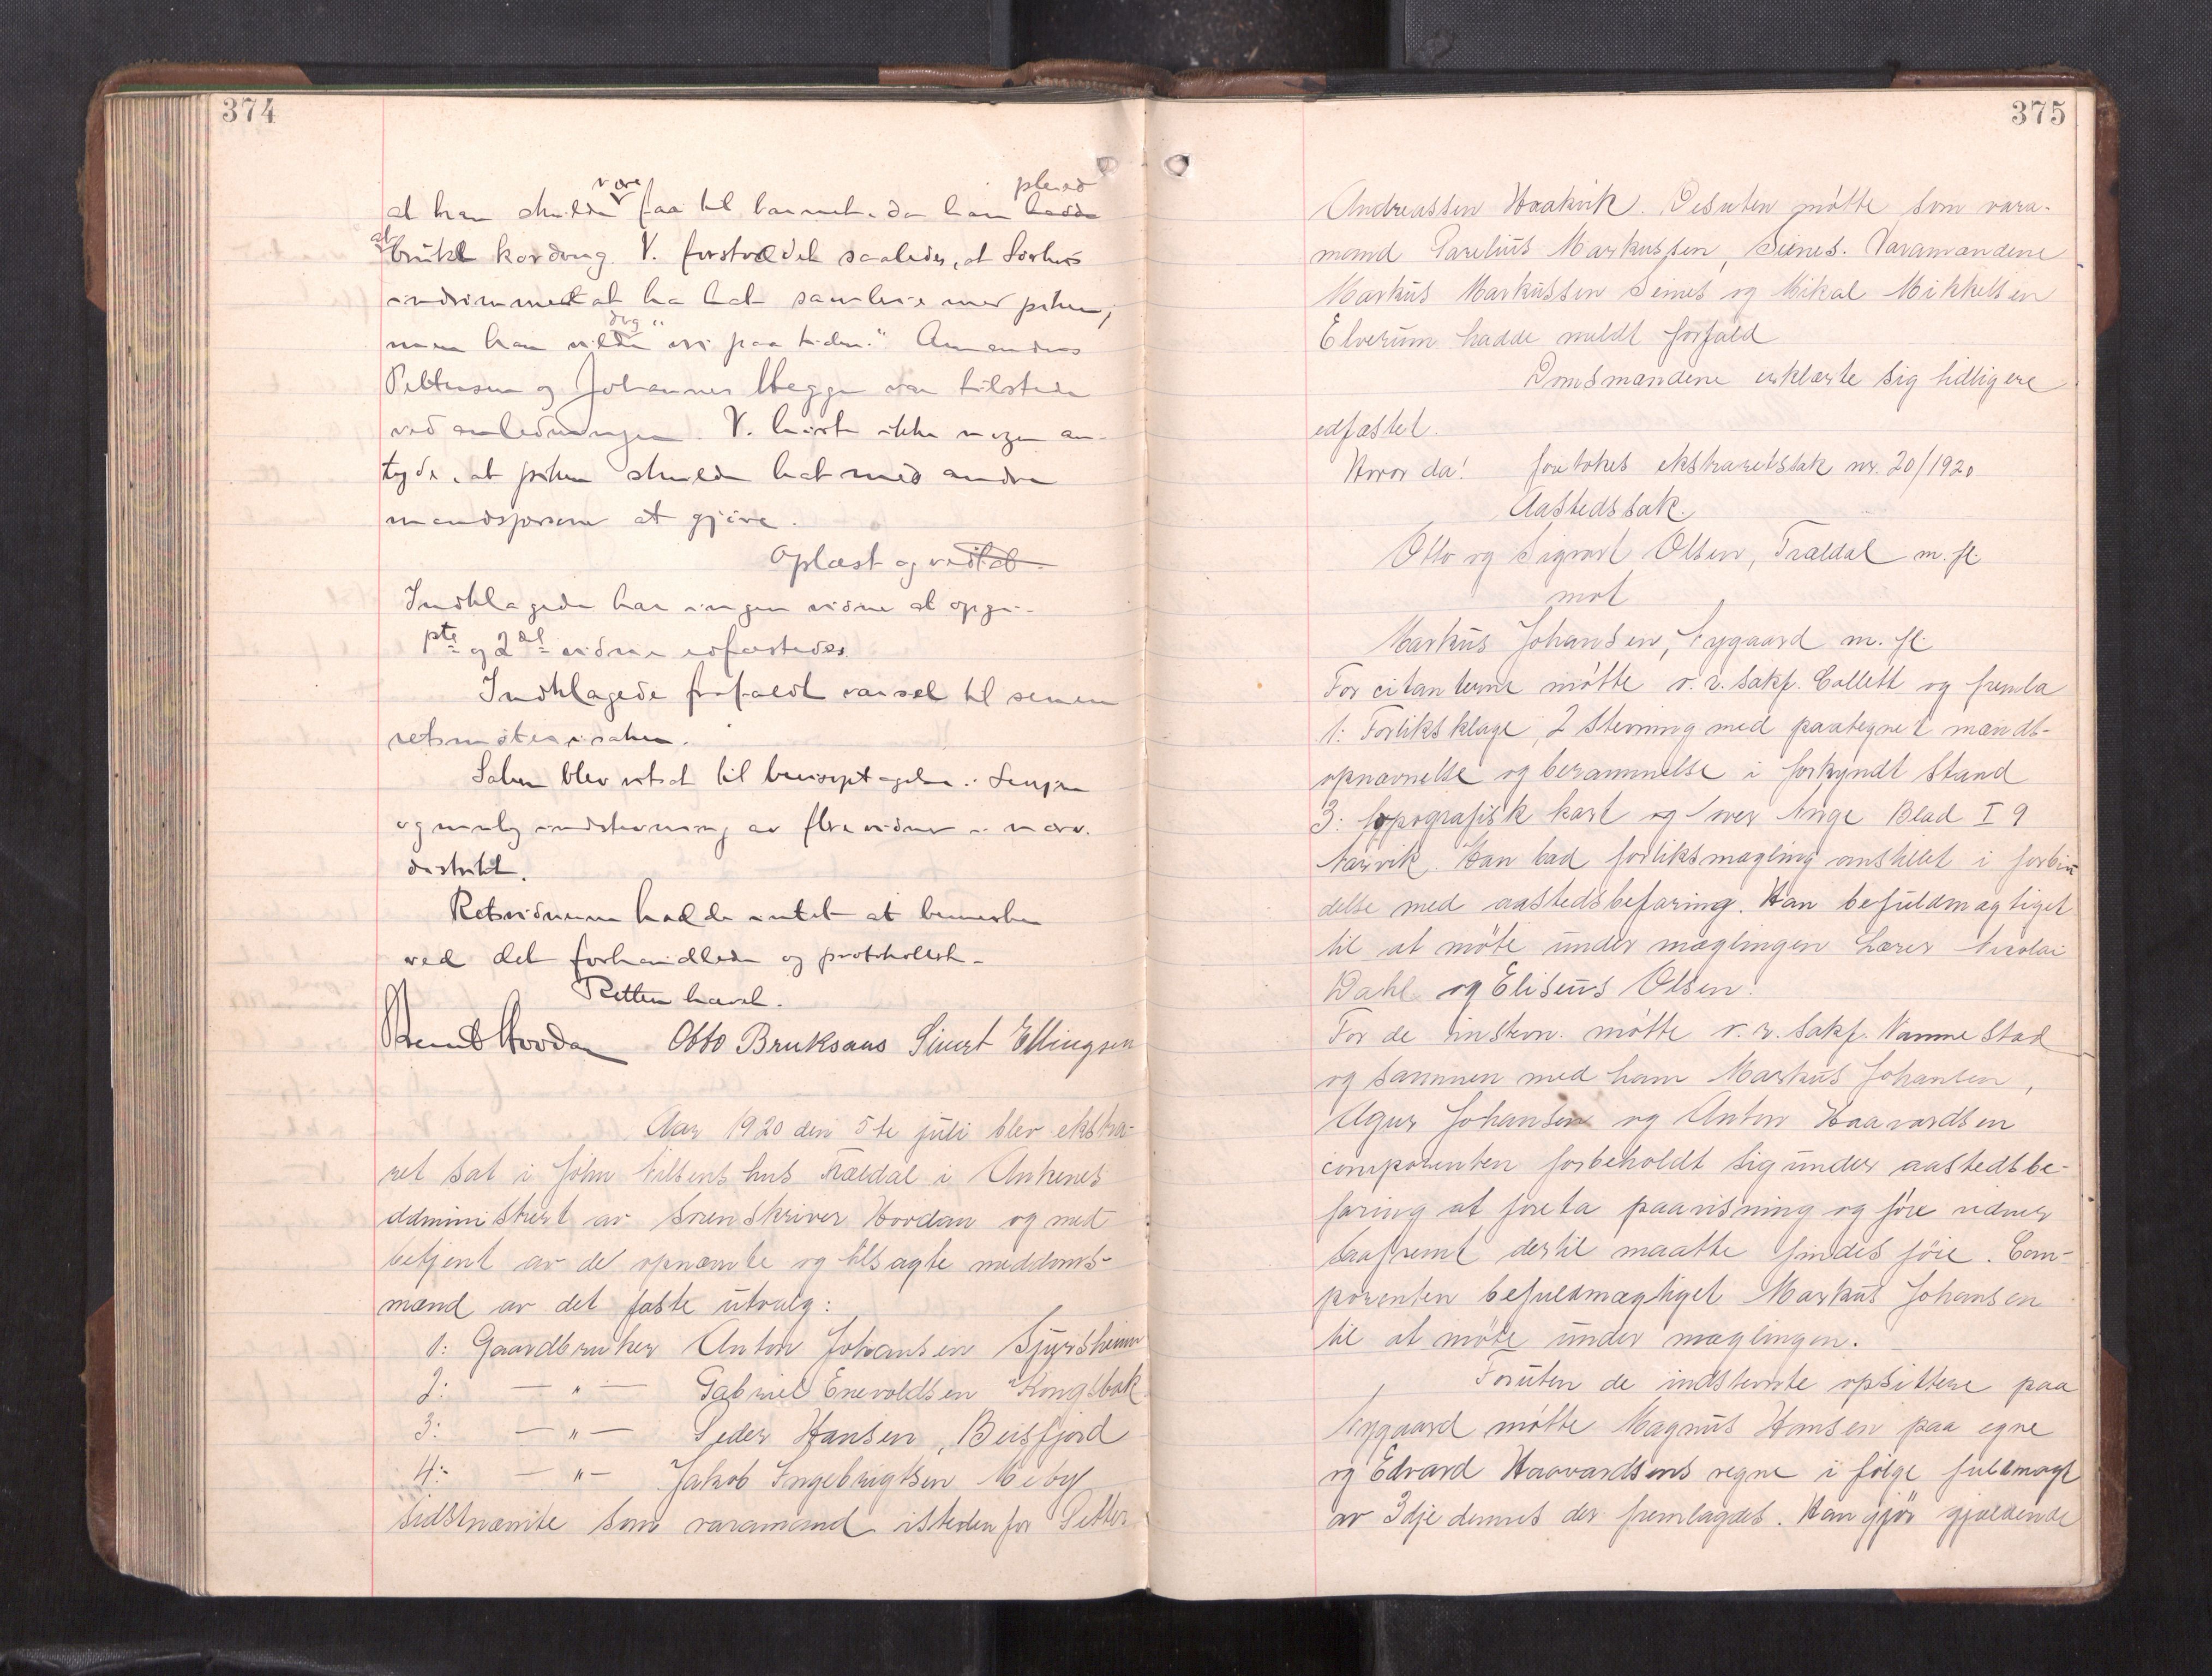 374
at han skulde være faa til barnet, da han hadde pleiet
at brukt kondong. V. forstod det saaledes, at
indrømmet at ha hat samleie med piken,
men han vilde dog "se paa tiden." Amandus
Pettersen og Johannes Hegge var tilstede
ved anledningen. V. hørte ikke nogen an-
tyde, at piken skulde hat med andre
mandspersoner at gjøre.
Oplæst og vedtat.
Indklagede har ingen vidne at opgi.
1ste og 2det vidne edfæstedes.
Indklagede frafaldt varsel til senere
retsmøter i saken.
Saken blev utsat til bevisoptagelse i Senjen
og mulig indstevning av flere vidner i nærv.
distrikt.
Retsvidnerne hadde intet at bemerke
ved det forhandlede og protokollerte.
Retten hævet.
Hovdan Otto Bruksaas Sivert Ellingsen
Aar 1920 den 5te juli blev ekstra-
ret sat i John Nilsens hus Trældal i Ankenes
administrert av sorenskriver Hovdan og med
betjent av de opnævnte og tilsagte meddoms-
mænd av det faste utvalg:
1: Gaardbruker Anton Johansen Sjursheim
2: — " — Gabriel Enevoldsen Kongsbak
3: — " — Peder Hansen, Beisfjord
4: — " — Jakob Ingebrigtsen Meby
sidstnævnte som varamand istedenfor Petter
375
Andreassen Haakvik. Desuten møtte som vara-
mand Parelius Markussen, Seines. Varamændene
Markus Markussen Seines og Mikal Mikkelsen
Elverum hadde meldt forfald
Domsmændene erklærte sig tidligere
edfæstet.
Hvor da! foretokes ekstraretssak nr. 20/1920
Aastedssak.
Otto og Sigvart Olsen, Trældal m. fl.
mot
Markus Johansen, Nygaard m. fl.
For citanterne møtte o. r. sakf. Collett og fremla
1: Forliksklage, 2 Stevning med paategnet mands-
opnævnelse og berammelse i forkyndt stand
3: topografisk kart og over Norge Blad I 9
Narvik. Han bad forliksmægling anstillet i forbin
delse med aastedsbefaring. Han befuldmægtiget
til at møte under mæglingen Lærer Nicolai
Dahl og Eliseus Olsen.
For de instevn. møtte o. r. sakf. Vammestad
og sammen med ham Markus Johansen,
Agur Johansen og Anton Haavardsen
comparenten forbeholdt sig under aastedsbe-
faring at foreta paavisning og føre vidner
saafremt dertil maatte findes føie. Com-
parenten befuldmægtiget Markus Johansen
til at møte under mæglingen.
Foruten de indstevnte opsittere paa
Nygaard møtte Magnus Hansen paa egne
og Edvard Haavardsens vegne i følge fuldmagt
av 3dje dennes der fremlagdes. Han gjør gjældende